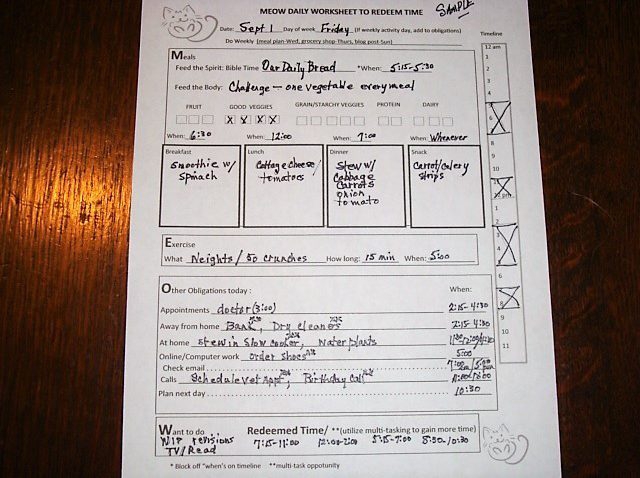 MEOW DAILY WORKSHEET TO REDEEM TIME
SAMPLE
Date: Sept 1 Day of week Friday (If weekly activity day, add to obligations)
Timeline
Do Weekly (meal plan-Wed, grocery shop-Thurs, blog post-Sun)
12 am
1
2
3
4
6
8
9
10
6
9
10
11
Meals
Feed the Spirit: Bible Time Our Daily Bread *When: 5:15-5:30
Feed the Body: Challenge - one vegetable every meal
FRUIT GOOD VEGGIES GRAIN/STARCHY VEGGIES PROTEIN DAIRY
X X X X
When: 6:30 When: 12:00 When: 7:00 When: Whenever
Breakfast Lunch Dinner Snack
Smoothie w/ spinach
Cottage cheese/ tomatoes
Stew w/
Cabbage
Carrots
onion
tomato
Carrot/celery
strips
Exercise
What Weights/50 crunches How long: 15 min When: 5:00
Other Obligations today: When:
Appointments doctor (3:00) 2:15-4:30
Away from home Bank, Dry Cleaners 2:15-4:30
At home stew in slow cooker, Water plants
Online/Computer work order shoes 5:00
Check email
Calls Schedule vet appt, Birthday Call
Plan next day 10:30
Want to do Redeemed Time/ **(utilize multi-tasking to gain more time)
WIP revisions 7:15-11:00 12:00-2:00 5:15-7:00 8:30-10:30
TV/Read
* Block off "when's on timeline **multi-task oppotunity